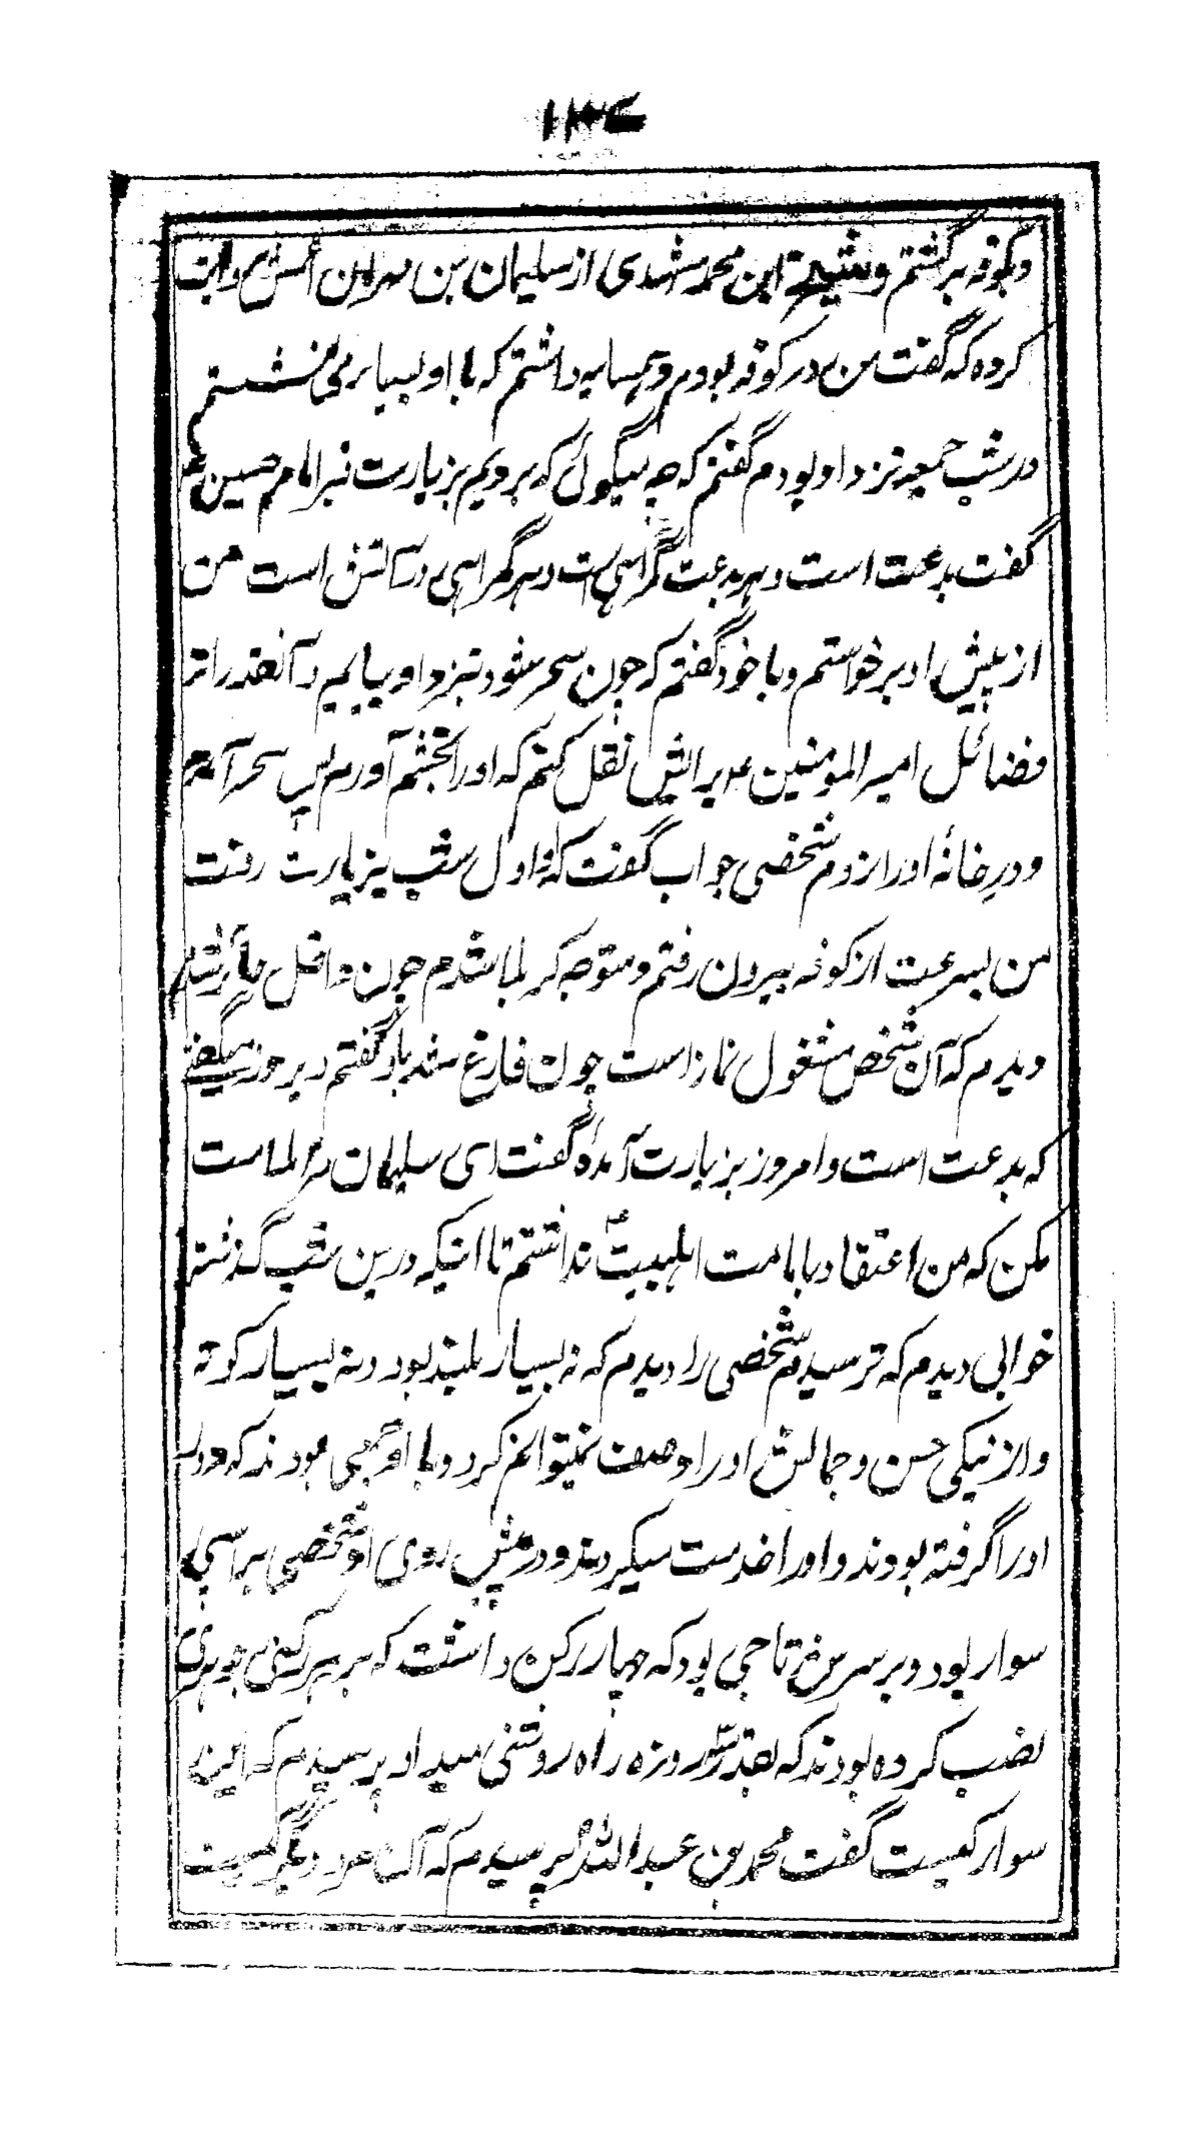 ۱۳۴
و بکوفه برگشتم و شیخ ابن محمد مشهدی از سلیمان بن مهران اعمش روایت
کرده که گفت من در کوفه بودم و همسایه داشتم که با او بسیار می نشستم
در شب جمعه نزد او بودم گفتم که چه میگوئی که برویم بزیارت قبر امام حسین ع
گفت بدعت است و هر بدعت گمراهی است و هر گمراهی در آتش است من
از پیش او برخواستم و با خود گفتم که چون سحر شود نزد او بیایم و آنقدر از
فضائل امیر المومنین ع برایش نقل کنم که او را بخشم آورم پس سحر آمدم
و در خانهٔ او را زدم شخصی جواب گفت که او اول شب بزیارت رفت
من بسرعت از کوفه بیرون رفتم و متوجه کربلا شدم چون داخل حائر شدم
دیدم که آن شخص مشغول نماز است چون فارغ شد باو گفتم دیروز میگفتی
که بدعت است و امروز بزیارت آمدهٔ گفت ای سلیمان مرا ملامت
مکن که من اعتقاد بامامت اهلبیتؑ نداشتم تا اینکه درین شب گذشته
خوابی دیدم که ترسیدم شخصی را دیدم که نه بسیار بلند بود و نه بسیار کوته
و از نیکی حسن و جمالش او را وصف نمیتوانم کرد و با او جمعی بودند که دور
او را گرفته بودند و او را خدمت میکردند و در پیش روی او شخصی بر اسپی
سوار بود و بر سرش تاجی بود که چهار رکن داشت که بر هر رکنی جوهری
نصب کرده بودند که بقدر سه روزه راه روشنی میداد پرسیدم که این
سوار کیست گفت محمد بن عبداللهؐ پرسیدم که آن مرد دیگر کیست